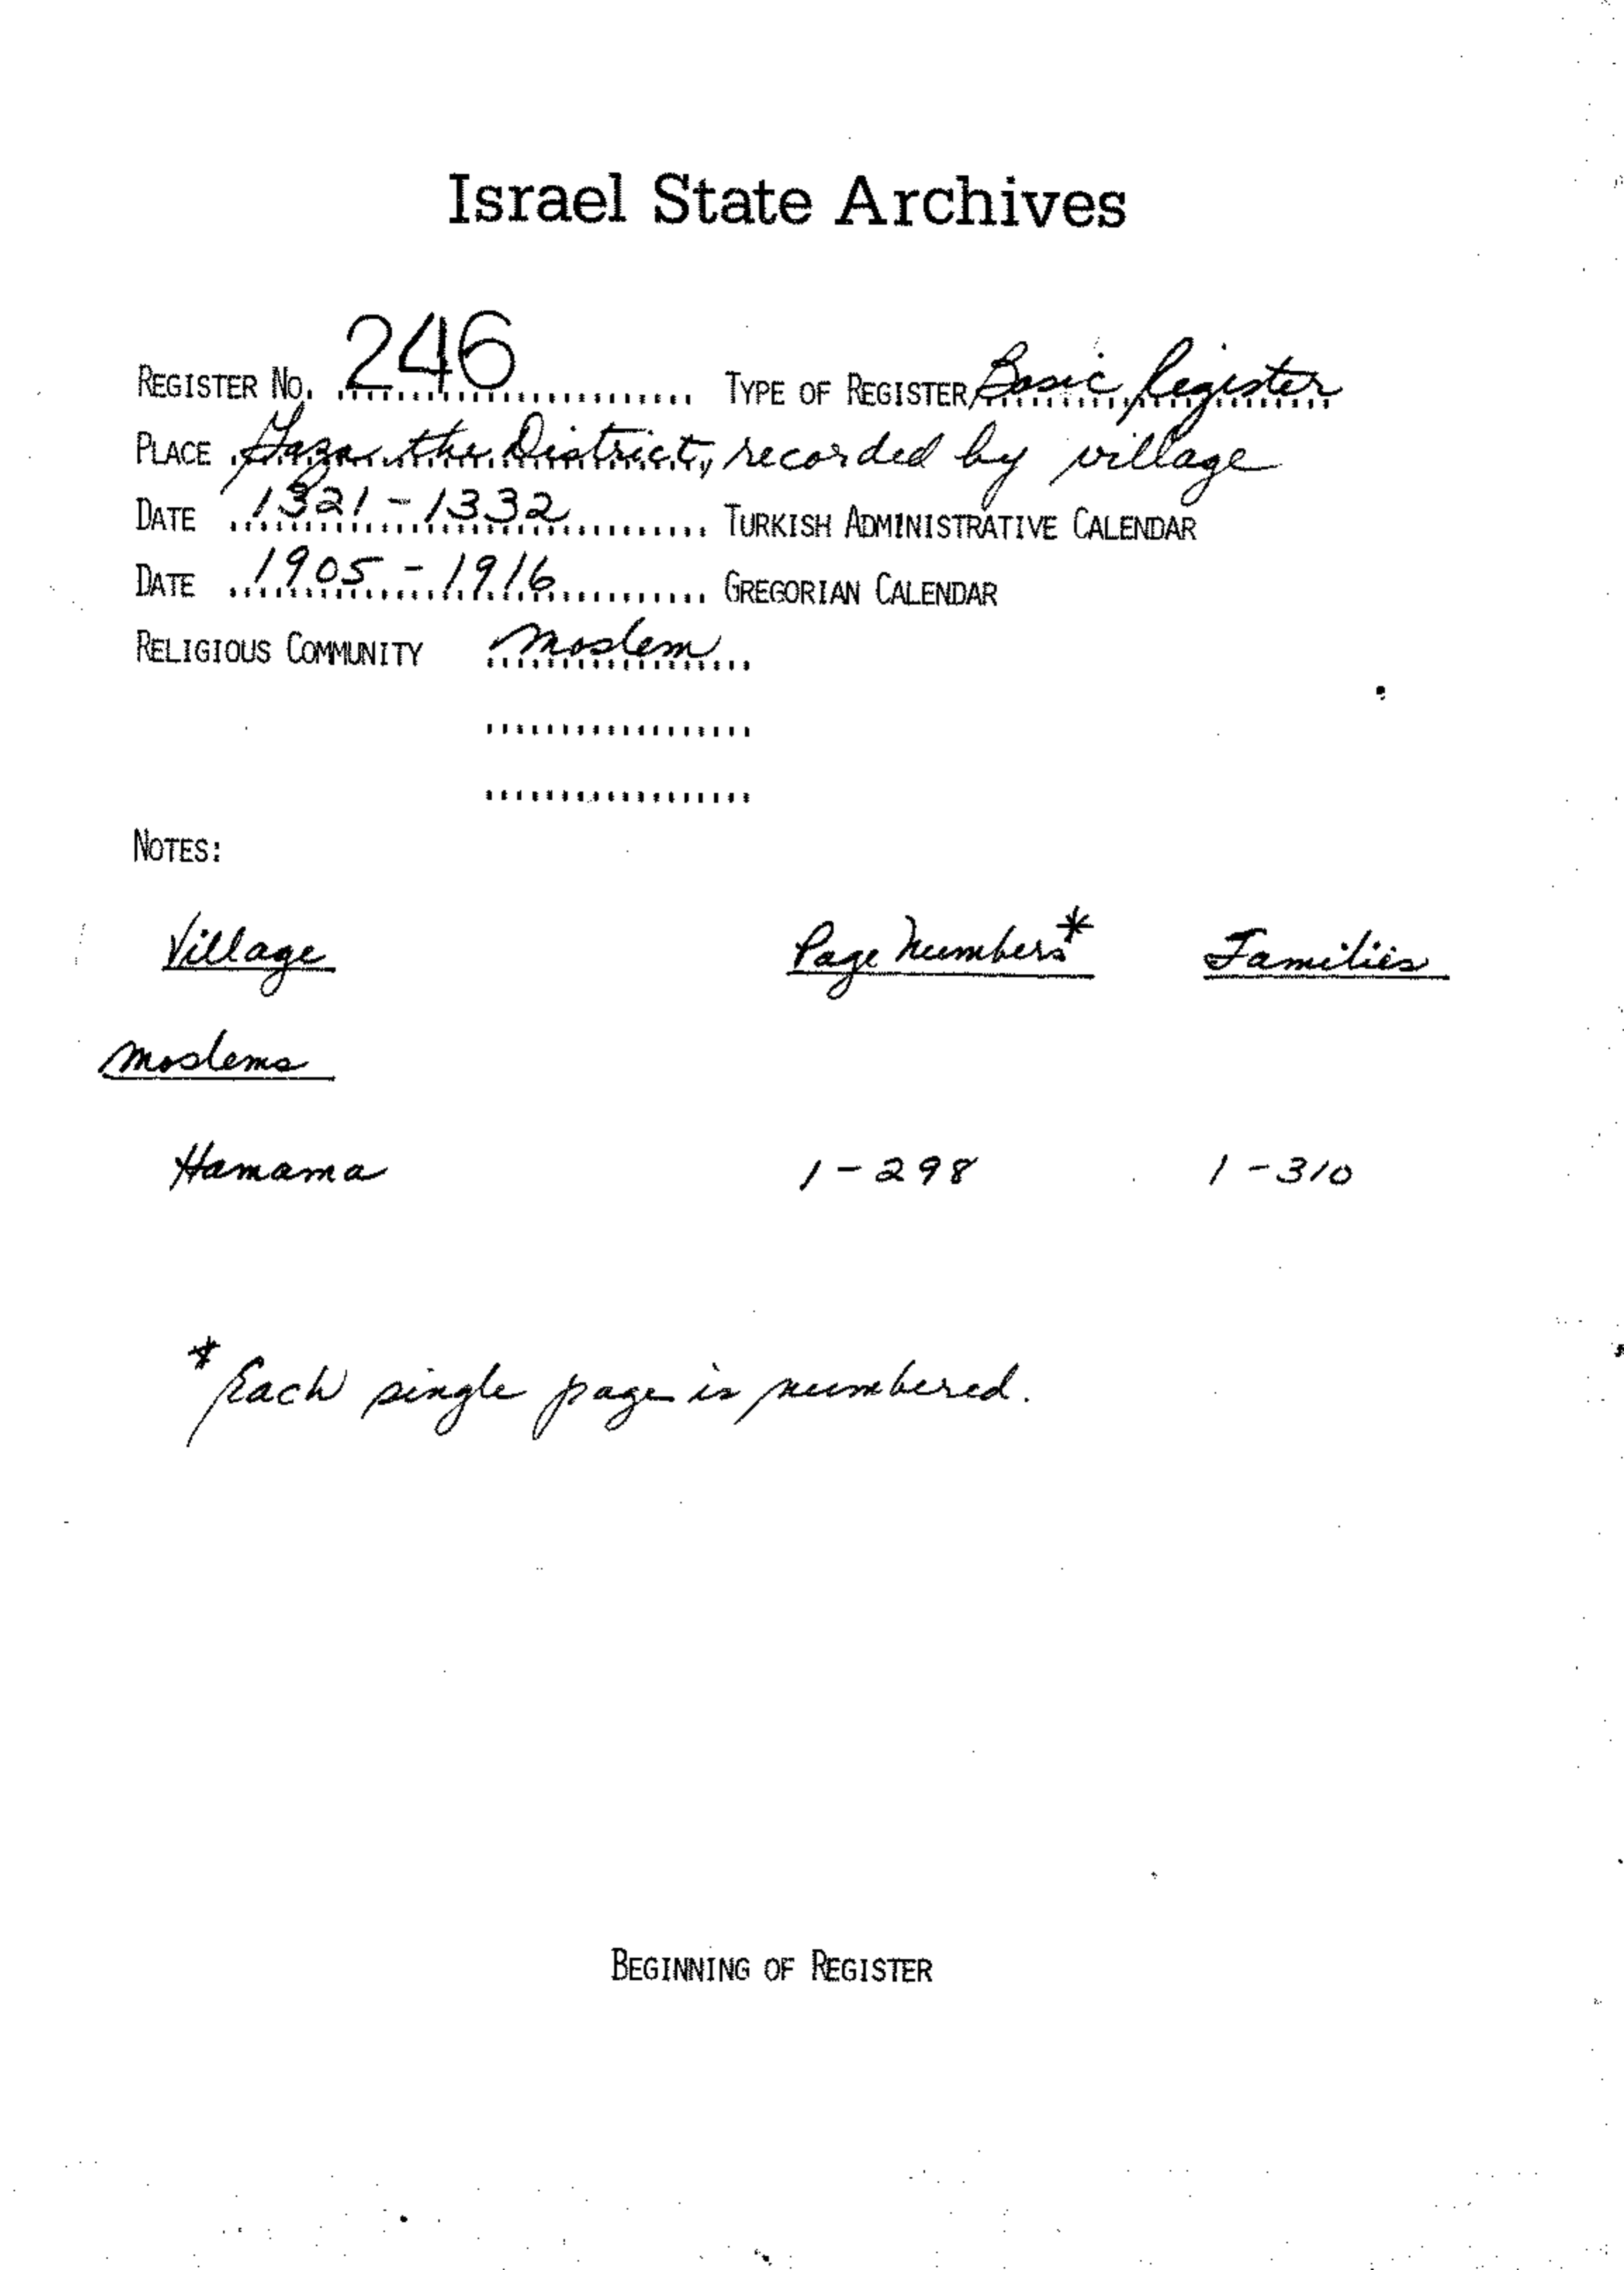 Israel State Archives
REGISTER NO. 246 TYPE OF REGISTER Basic Register
PLACE Gaza the District, recorded by village
DATE 1321-1332 TURKISH ADMINISTRATIVE CALENDAR
DATE 1905-1916 GREGORIAN CALENDAR
RELIGIOUS COMMUNITY Moslem
NOTES:
Village Page Numbers* Families
Moslems
Hamama 1-298 1-310
* Each single page is numbered.
BEGINNING OF REGISTER